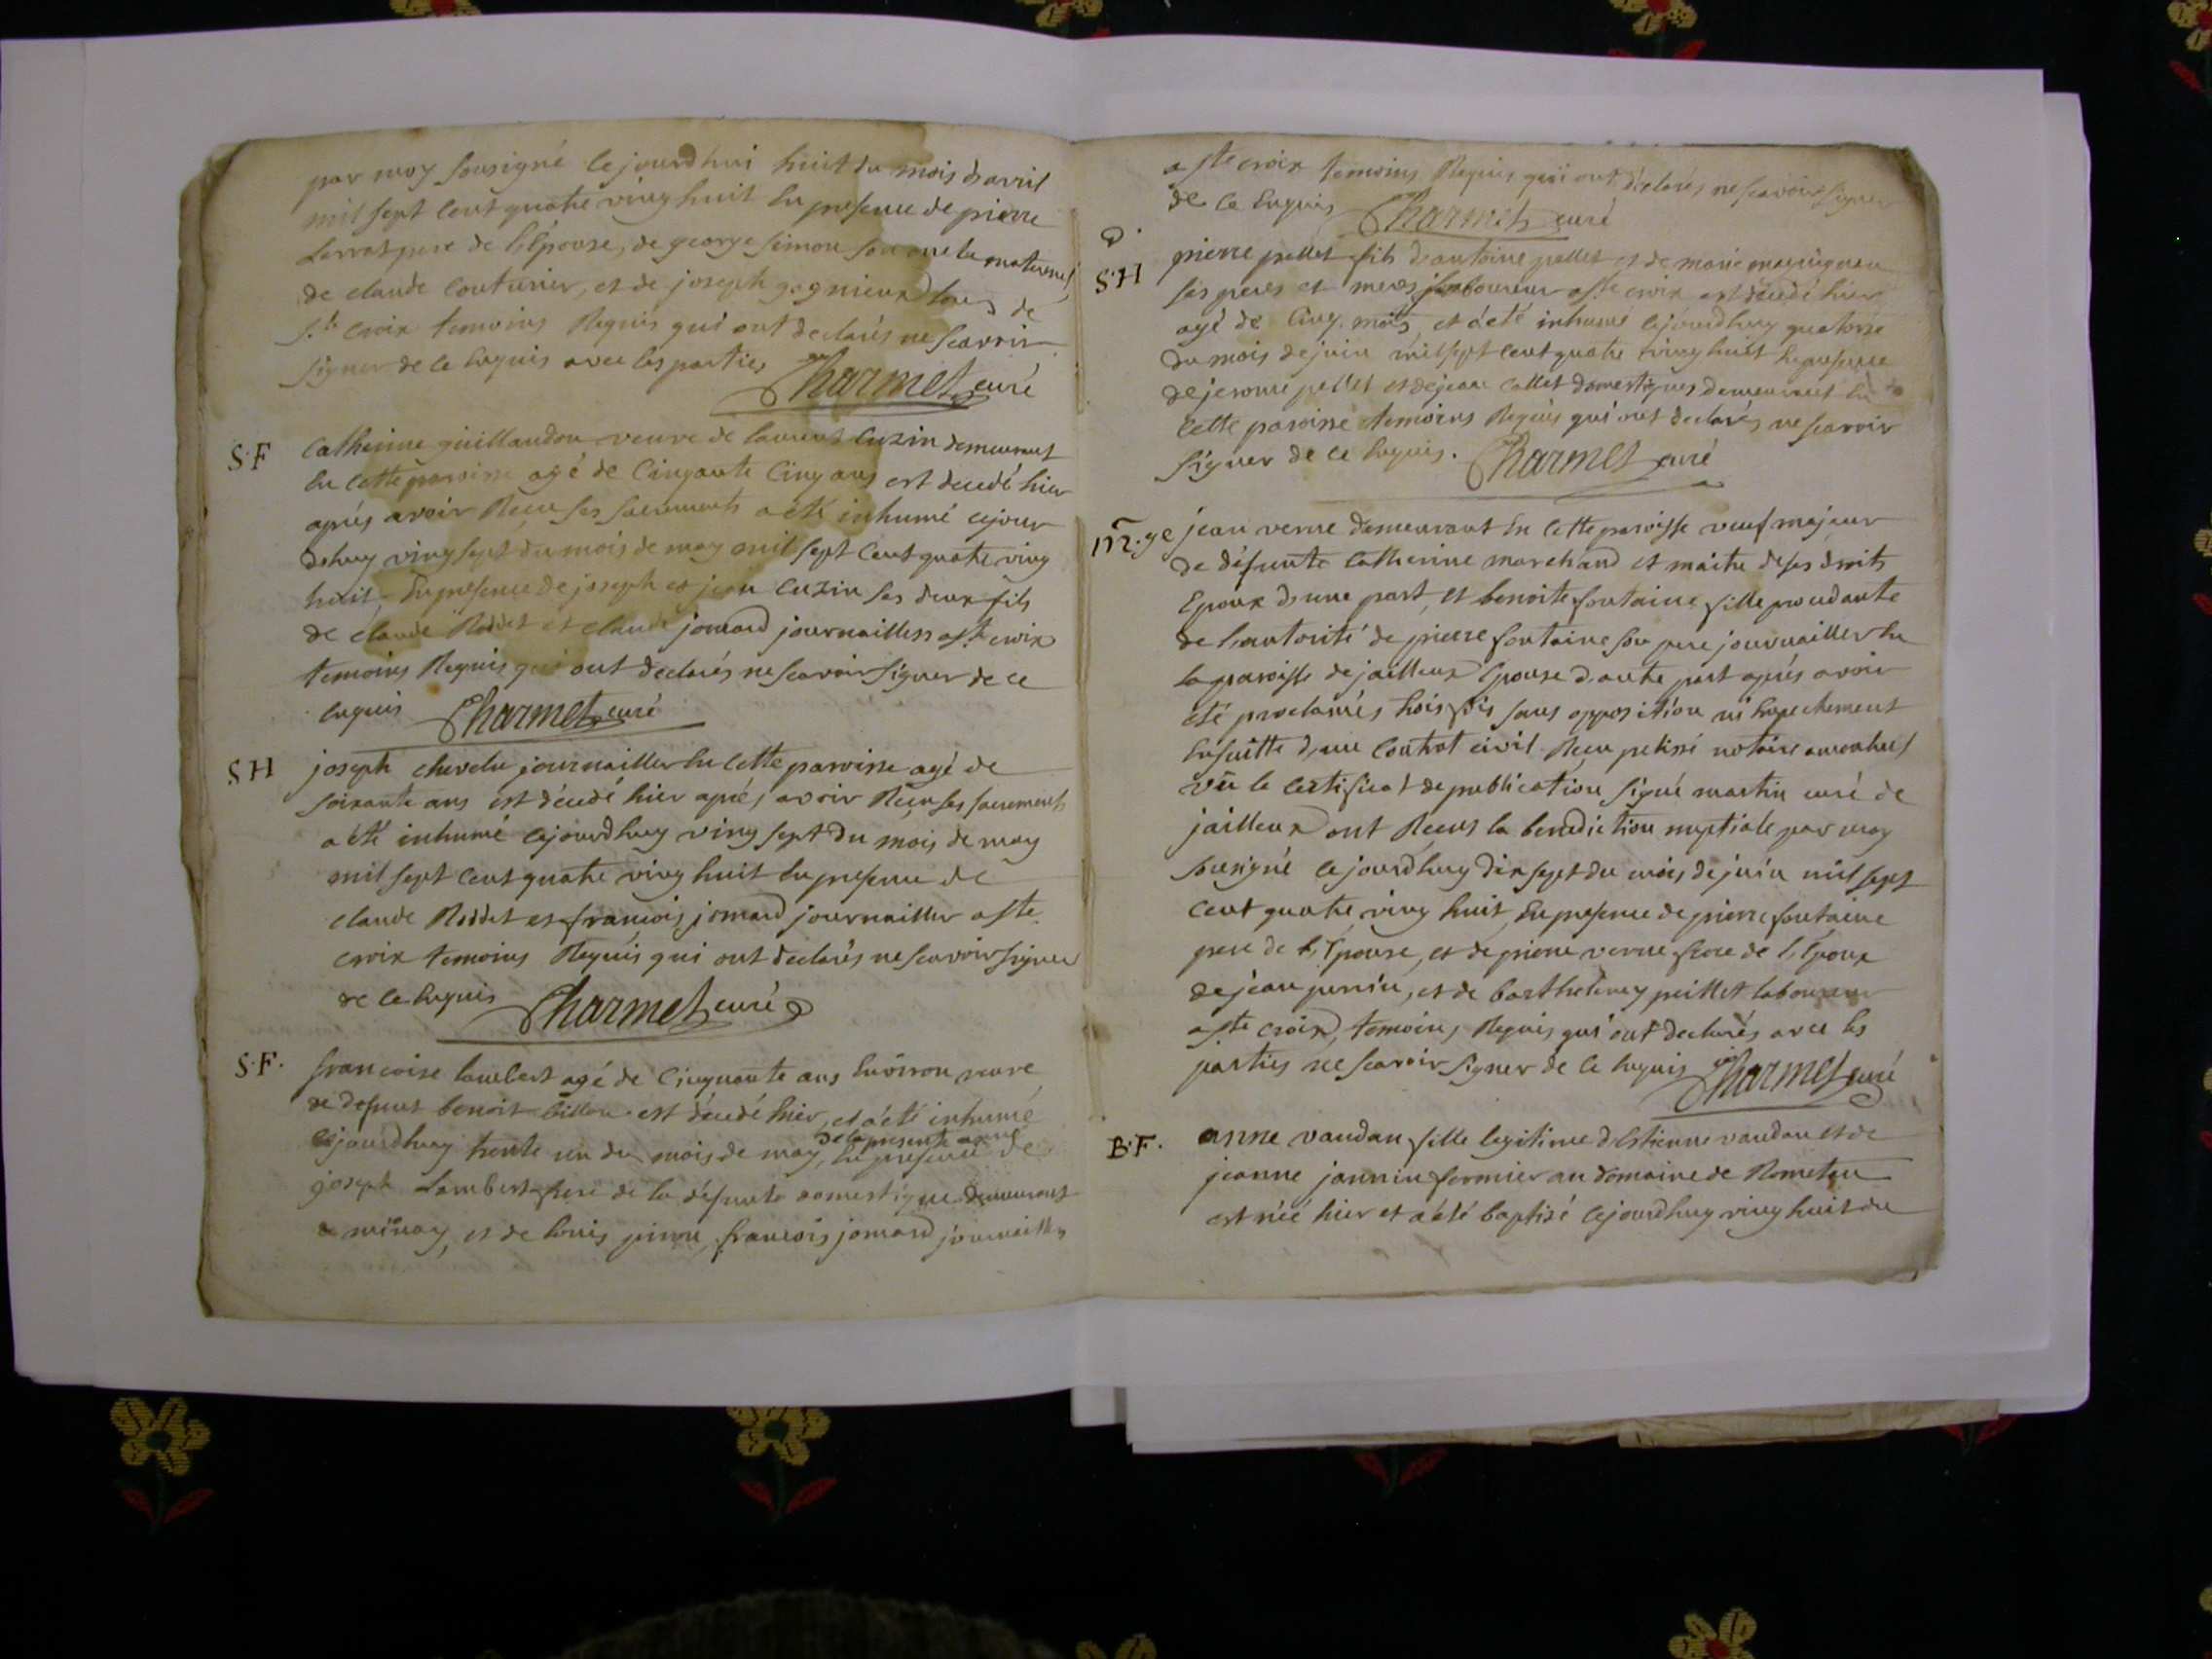 par moy sousigné cejourdhui huit du mois d avril
mil sept cent quatre ving huit En presence de pierre
Larrat pere de L'Epouse, de george simon son oncle maternel
de claude couturier, et de joseph gagnieux tous de
S.te croix temoins Requis qui ont declarés ne scavoir
signer de ce Enquis avec les parties Charmet curé
S.F catherine guillaudon veuve de laurent cuzin demeurant
En cette paroisse agé de Cinqante Cinq ans est decedé hier
aprés avoir Recu ses sacrements a été inhumé cejour
dehuy ving sept du mois de may mil sept cent quatre ving
huit, En presence de joseph et jean cuzin ses deux fils
de claude Roddet et claude jomard journailliers a S.te croix
temoins Requis qui ont declarés ne scavoir signer de ce
Enquis Charmet curé
S H joseph chevelu journaillier En cette paroisse agé de
soixante ans est décedé hier aprés avoir Recu ses sacrements
a été inhumé cejourdhuy ving sept du mois de may
mil sept cent quatre ving huit En presence de
claude Roddet et françois jomard journaillier a Ste
croix temoins Requis qui ont declarés ne scavoir signer
de ce Enquis Charmet curé
S.F. francoise lambert agé de Cinquante ans Environ veuve
de defunt benoit est décedé hier, et a été inhumé
cejourdhuy trente un du mois de may de la presente année En presence de
joseph Lambert frere de la défunte domestique demeurant
a et de louis pierre, francois jomard journaillier
a Ste croix temoins Requis qui ont déclarés ne scavoir signer
de ce Enquis Charmet curé
S.H pierre pellet fils d antoine pellet et de marie
ses peres et meres laboureur a Ste croix est décedé hier
agé de Cinq mois, et a été inhumé cejourdhuy quatorse
du mois de juin mil sept cent quatre ving huit En presence
de jerome pellet et de jean collet domestiques demeurant En
cette paroisse temoins Requis qui ont declarés ne scavoir
signer de ce Enquis. Charmet curé
m.ge jean verne demeurant En cette paroisse veuf majeur
de défunte catherine marchand et maitre de ses droits
Epoux d une part, et benoite fontaine fille procedante
de l'autorité de pierre fontaine son pere journaillier En
la paroisse de jailleux Epouse d autre part aprés avoir
été proclamés trois fois sans opposition ni Empechement
Ensuitte d un contrat civil Recu notaire a montluel
vû le certificat de publication signé martin curé de
jailleux ont Recus la benediction nuptiale par moy
sousigné cejourdhuy dix sept du mois de juin mil sept
cent quatre ving huit, En presence de pierre fontaine
pere de l'Epouse, et de pierre verne frere de l'Epoux
de jean perrin, et de barthelemy peillet laboureur
a Ste croix, temoins Requis qui ont declarés avec les
parties ne scavoir signer de ce Enquis Charmet curé
B.F. anne vaudan fille legitime d Estienne vaudan et de
jeanne jannin fermier au domaine de Rometan
est née hier et a été baptisé cejourdhuy ving huit du